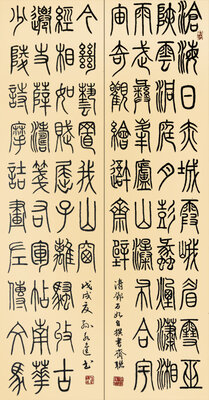 滄海日赤城霞峨眉雪巫
峽雲洞庭月彭蠡煙瀟湘
雨武夷峰廬山瀑布合宇
宙奇觀繪吾齋壁
清鄧石如自撰書齋聯
少陵詩摩詰畫左傳文馬
遷史薛濤箋右軍帖南華
經相如賦屈子離騷收古
今絕藝置我山窗
戊戌夏